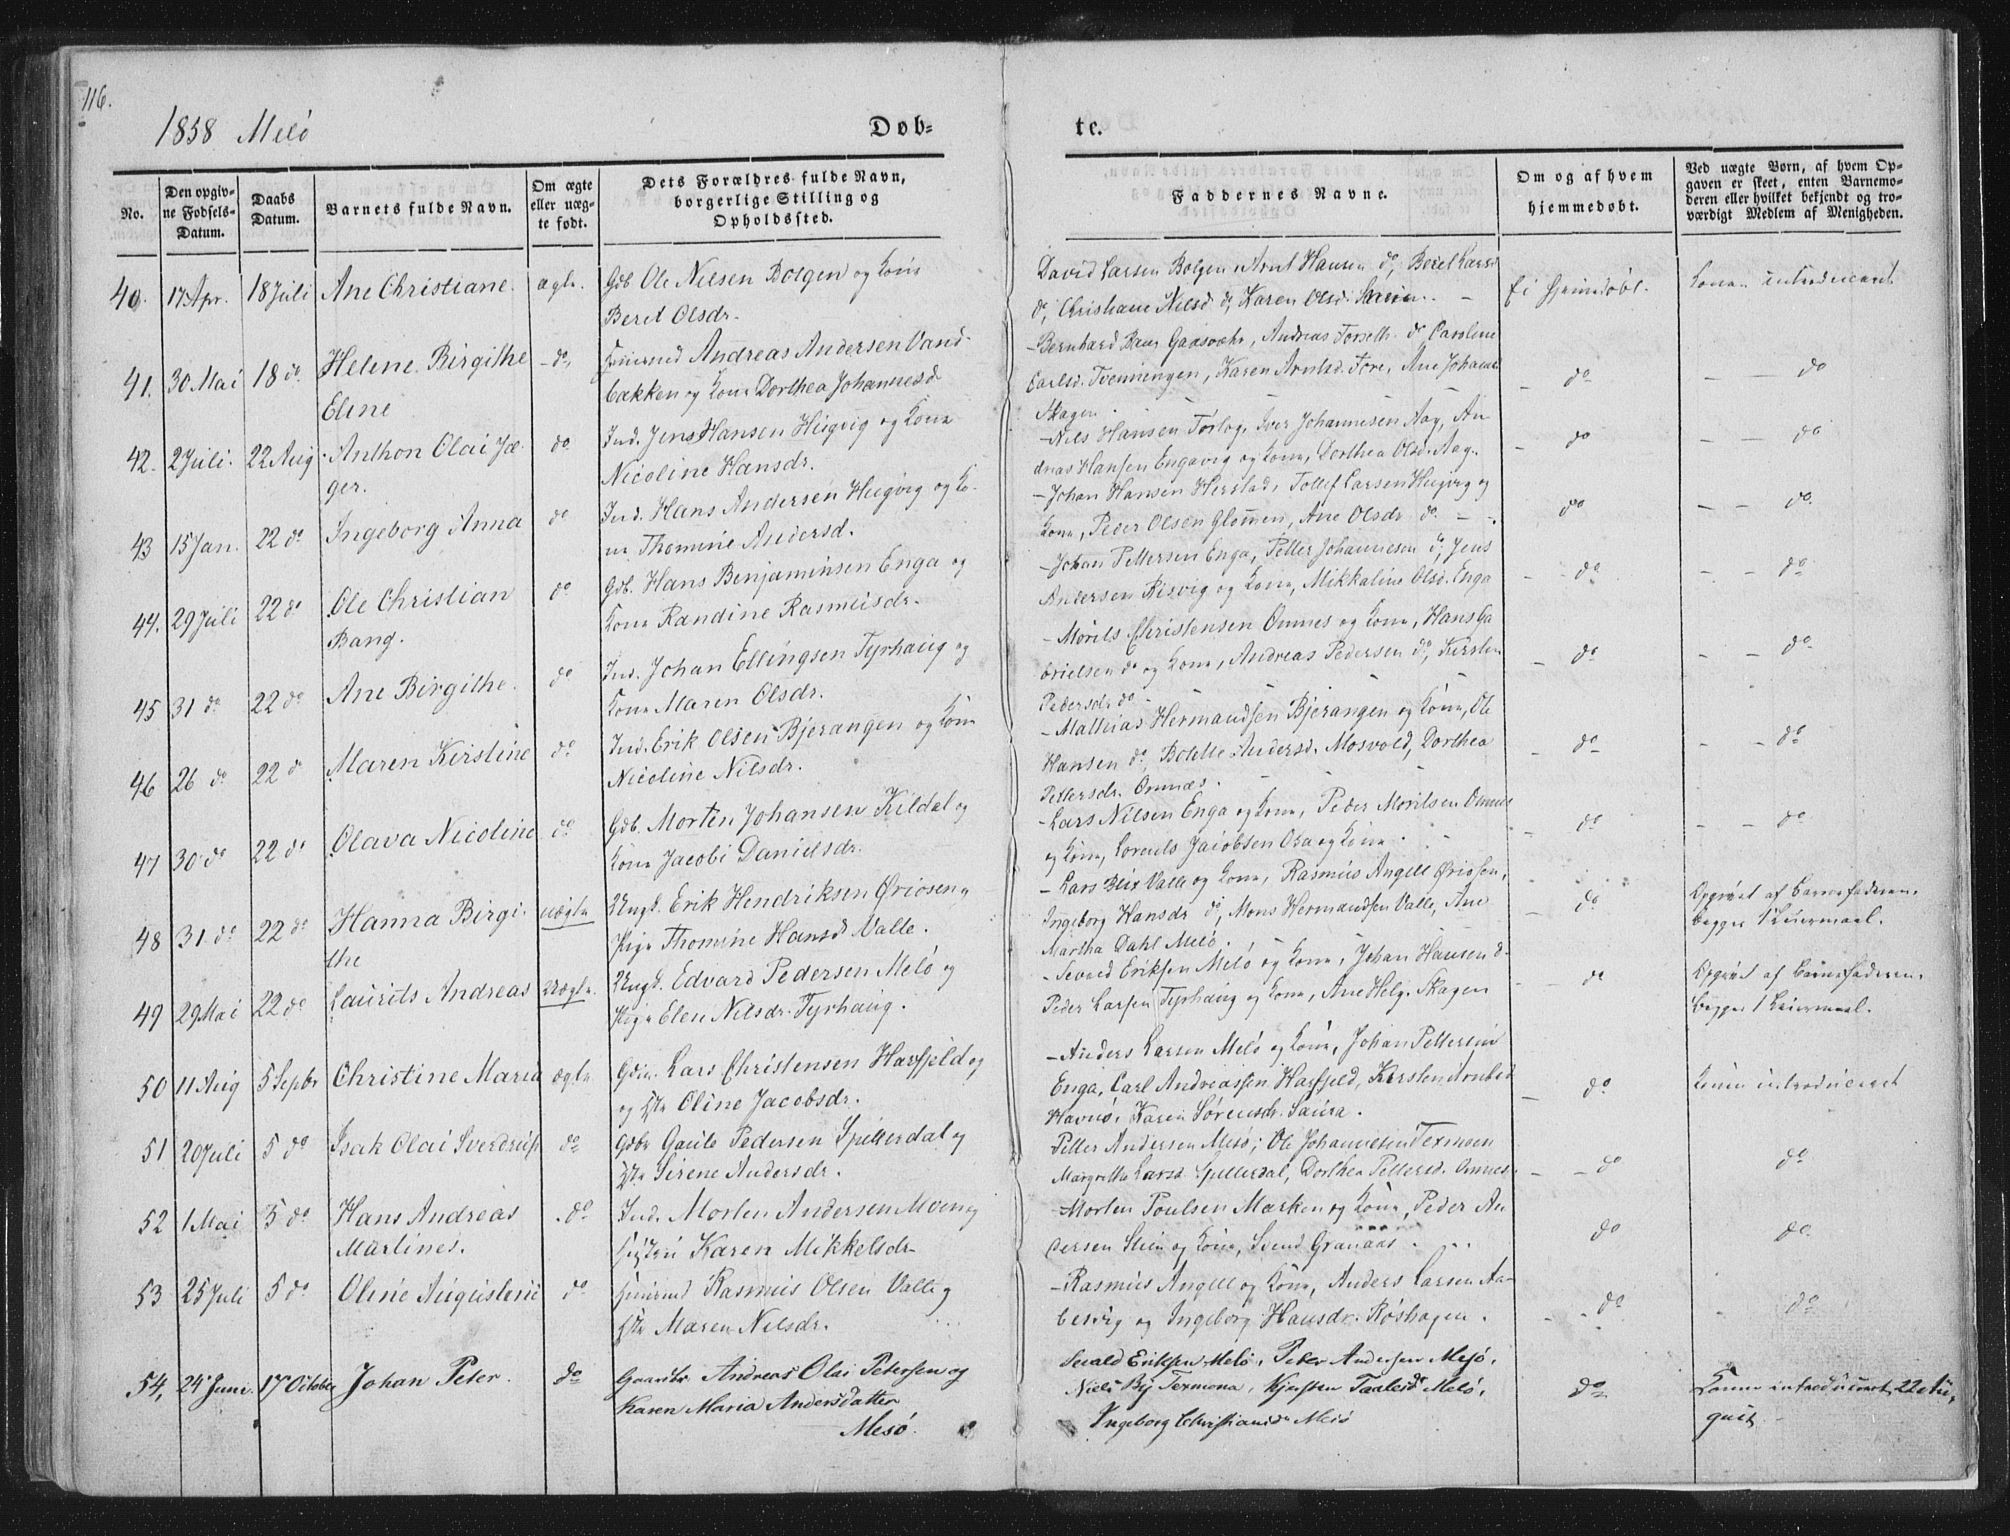 116.
1858 Melö
Døb-
te.
No.
Den opgiv-
ne Fødsels-
Datum.
Daabs
Datum.
Barnets fulde Navn.
Om ægte
eller uæg-
te født.
Dets Forældres fulde Navn,
borgerlige Stilling og
Opholdssted.
Faddernes Navne.
Om og af hvem
hjemmedøbt.
Ved uægte Børn, af hvem Op-
gaven er skeet, enten Barnemo-
deren eller hvilket bekjendt og tro-
værdigt Medlem af Menigheden.
40. 17 Apr. 18 Juli Ane Christiane. ægte. Gdb Ole Nilsen Bolgen og Kone
Berit Olsdr.
David Larsen Bolgen, Arnt Hansen do, Beret Larsd
do, Christiane Nilsd do, Karen Olsd.
Konen introduceret
41. 30 Mai 18 do Helene Birgithe
Eline
do, Huusmd Andreas Andersen Vand-
bakken og Kone Dorthea Johannesd
Bernhard Gaasvær, Andreas Forseth do Caroline
Carlsd. Tvenningen, Karen Arntsd. Fore, Ane Johans
Skagen.
do
do
42. 2 Juli. 22 Aug. Anthon Olai Jæ-
ger.
do Ind. Jens Hansen Hugvig og Kone
Nicoline Hansdr.
Nils Hansen Forlog, Iver Johannesen Aag, An-
dreas Hansen Engavig og Kone, Dorthea Olsd. Aag.
do
do
43 15 Jan. 22 do Ingeborg Anna
do Ind. Hans Andersen Hugvig og Ko-
ne Thomine Andersd.
Johan Hansen Herstad, Tollef Larsen Hugvig og
Kone, Peder Olsen Glommen, Ane Olsdr do
do
do
44. 29 Juli 22 do Ole Christian
Bang.
do Gdb. Hans Benjaminsen Enga og
Kone Randine Rasmusdr.
Johan Pettersen Enga, Petter Johannesen do, Jens
Andersen Risvig og Kone, Mikkaline Olsd. Enga
do
do
45 31 do 22 do Ane Birgithe.
do Ind. Johan Ellingsen Tyrhaug og
Kone Maren Olsdr.
Morits Christensen Omnes og Kone, Hans Ga-
brielsen do og Kone, Andreas Pedersen do, Kirsten
Pedersdr do
do
do
46 26 do 22 do Maren Kirstine
do Ind. Erik Olsen Bjerangen og Kone
Nicoline Nilsdr.
Mathias Hermandsen Bjerangen og Kone, Ole
Hansen do, Bolette Andersd. Mosvold, Dorthea
Pettersdr. Omnæs.
do
do
47 30 do 22 do Olava Nicoline
do Gdb. Morten Johansen Kildal og
Kone Jacobi Danielsdr.
Lars Nilsen Enga og Kone, Peder Moritsen Omnes
og Kone, Lorents Jacobsen Osa og Kone
do
do
48 31 do 22 do Hanna Birgi-
the
uægte Ungk. Erik Hendriksen Øriosen og
Pige Thomine Hansd Valle.
Lars Blix Valle og Kone, Rasmus Angell Øriosen,
Ingeborg Hansdr do, Mons Hermandsen Valle, Ane
Martha Dahl Melö.
do
Opgivet af Barnefaderen.
begges 1 Leiermaal.
49 29 Mai 22 do Laurits Andreas
Uægte. Ungk. Edvard Pedersen Melö og
Pige Elen Nilsdr. Tyrhaug.
Sevard Eriksen Melö og Kone, Johan Hansen do
Peder Larsen Tyrhaug og Kone, Ane Helg. Skagen
do
Opgivet af Barnefaderen.
begges 1 Leiermaal.
50 11 Aug 5 Septbr Christine Maria
ægte Gdm. Lars Christensen Harfjeld og
og Hstr Oline Jacobsdr.
Anders Larsen Melö og Kone, Johan Pettersen
Enga, Carl Andreassen Harfjeld, Kirsten Arntsd
Havnö, Karen Sörensdr. Saura.
do
Konen introduceret
51 20 Juli 5 do Isak Olai Sverdrup
do Gdbr Gaute Pedersen Spilderdal og
Hstr Sirene Andersdr.
Petter Andersen Mesö, Ole Johannesen Texmoen
Margrethe Larsd Spilderdal, Dorthea Pettersd. Omnes.
do
do
52 1 Mai 5 do Hans Andreas
Martines.
do Ind. Morten Andersen Moen og
Hustru Karen Mikkelsdr
Morten Poulsen Marken og Kone, Peder An-
dersen Stien og Kone, Svend Granaas
do
do
53 25 Juli 5 do Oline Augustine
do Huusmd Rasmus Olsen Valle og
Hstr Maren Nilsdr.
Rasmus Angell og Kone, Anders Larsen Aa-
bervig og Ingeborg Hansdr. Röshagen.
do
do
54, 24 Juni. 17 October Johan Peter.
do Gaardbr. Andreas Olai Petersen og
Karen Maria Andersdatter
Mesö.
Sevald Eriksen Melö, Peter Andersen Mesö,
Niels By Texmona, Kjersten Taalesdr Melö,
Ingeborg Christiansdr Mesö
do
Konen introduceret 22 Au-
gust.